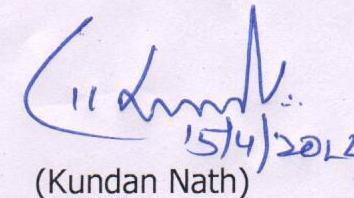 15/4/2012
(Kundan Nath)